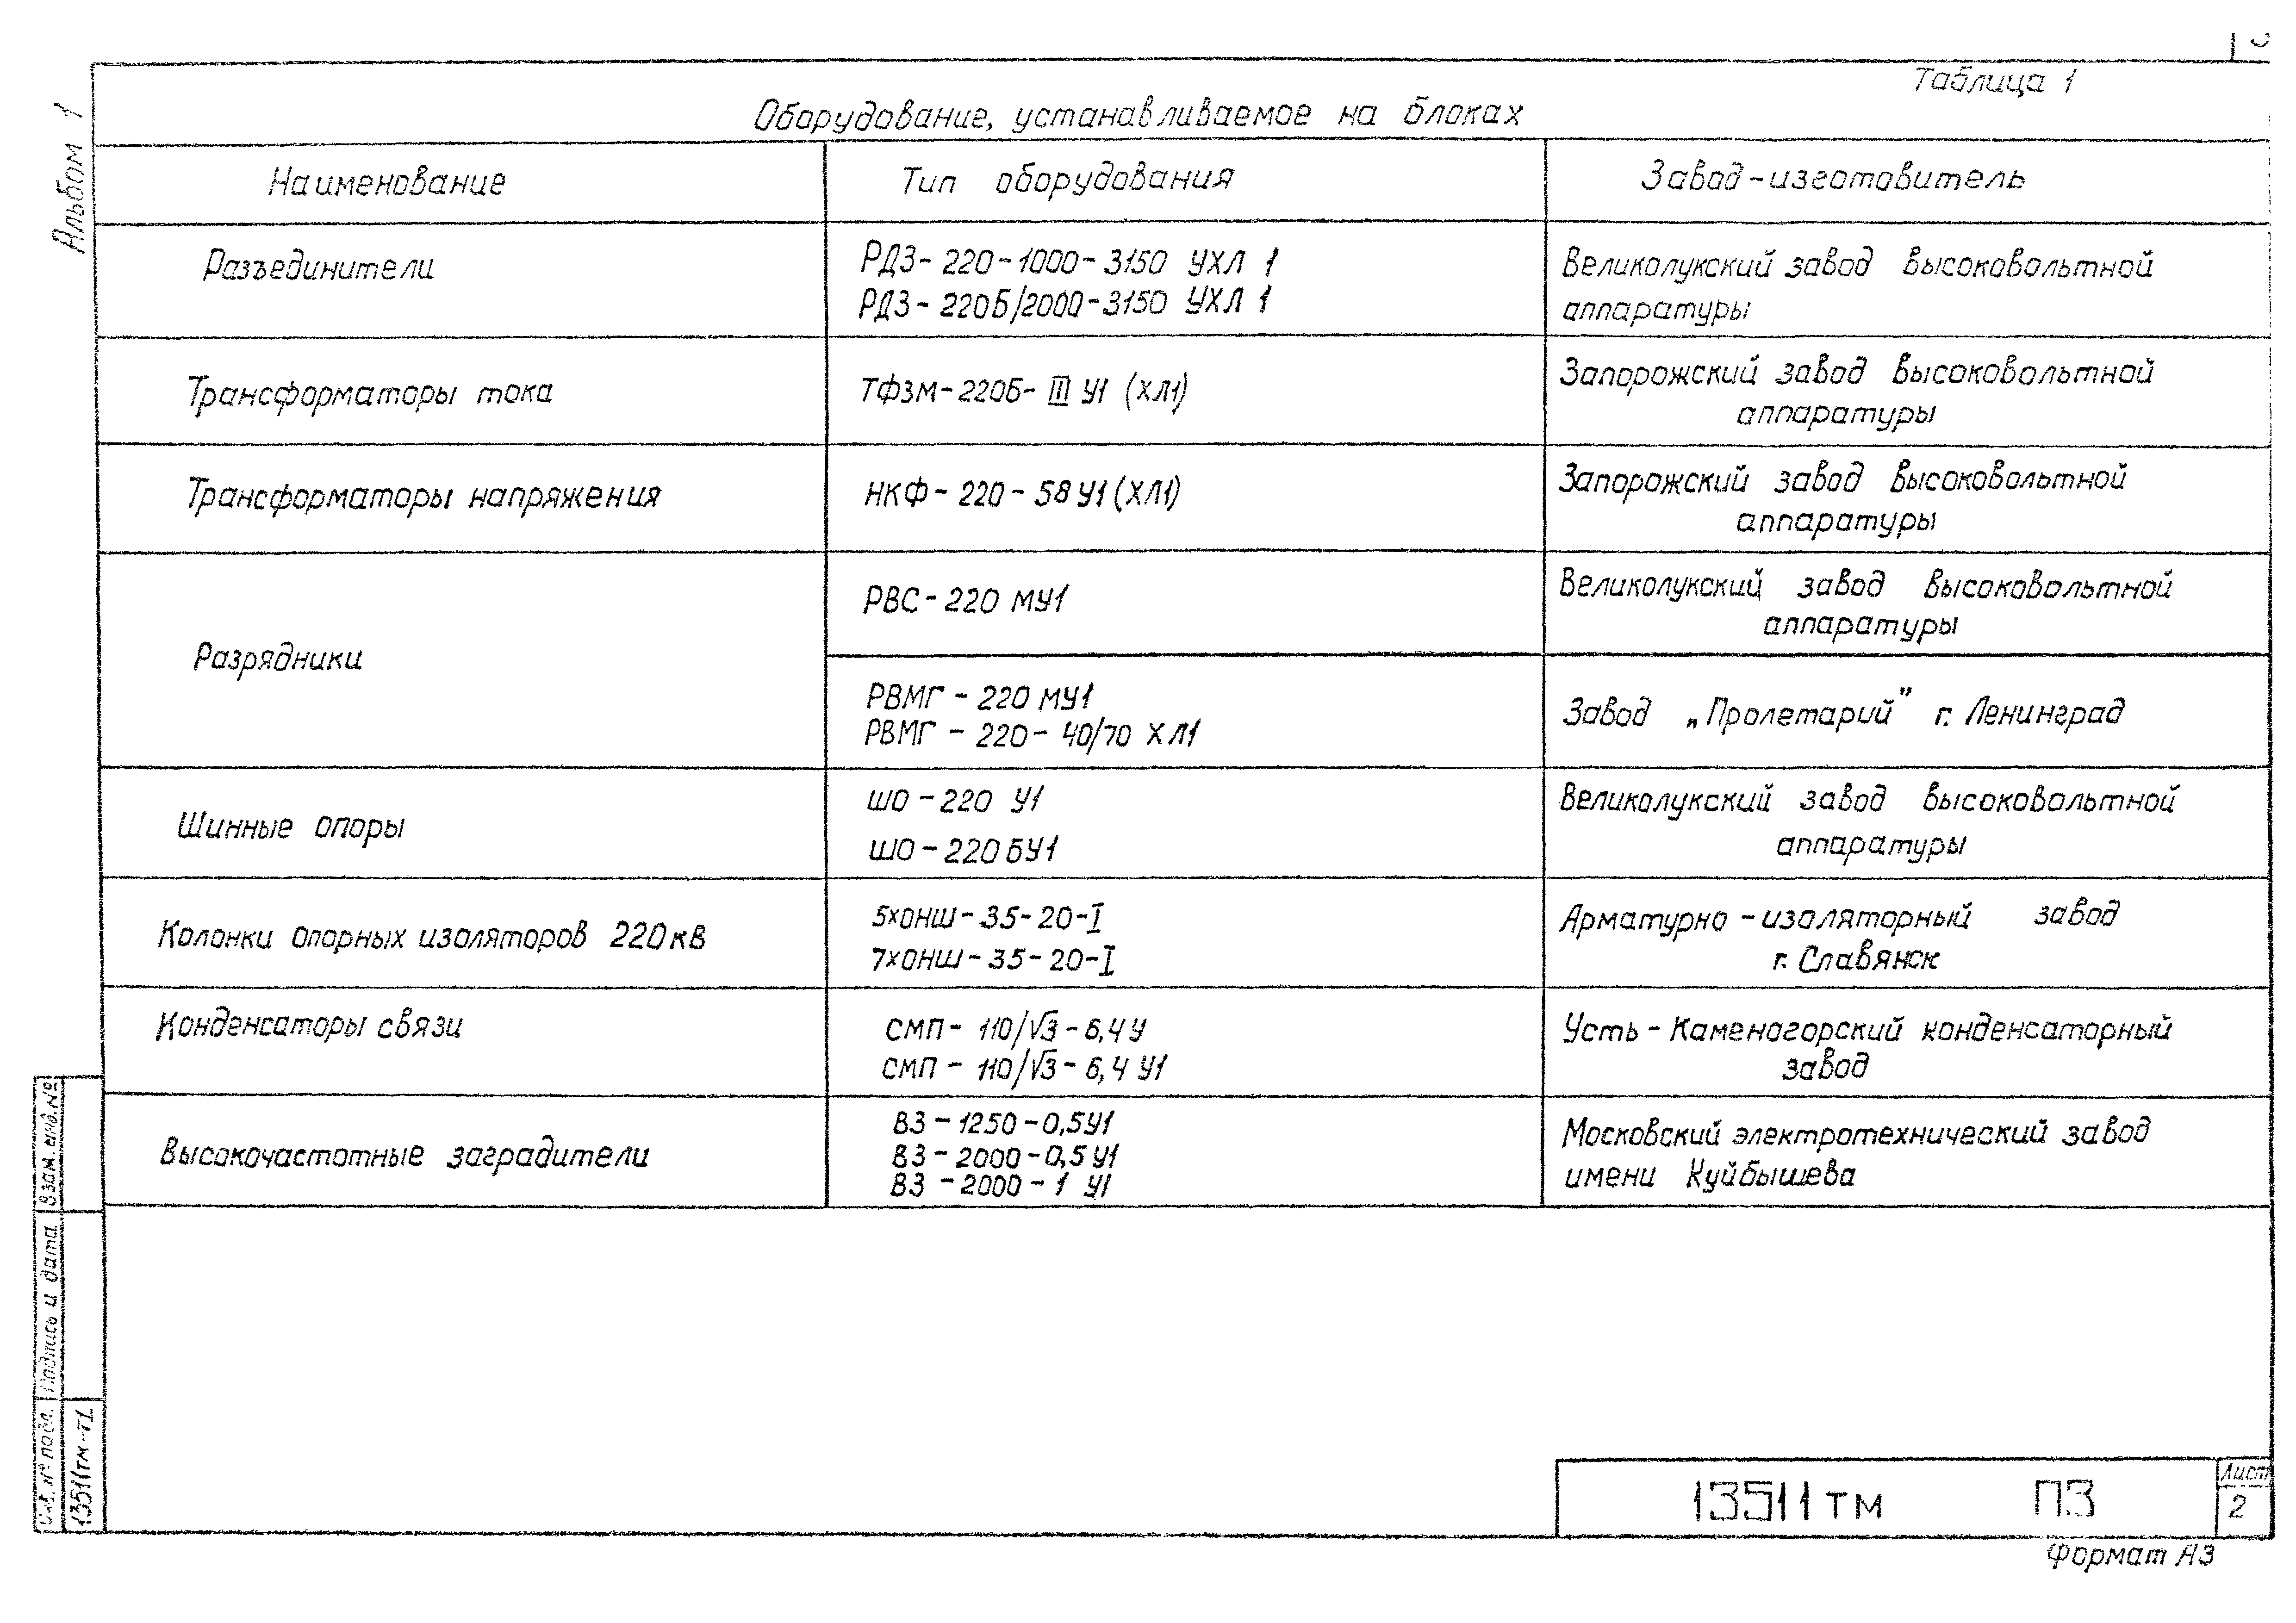 Таблица 1
Альбом 1
Оборудование, устанавливаемое на блоках
Наименование
Тип оборудования
Завод-изготовитель
Разъединители
РДЗ-220-1000-3150 УХЛ 1
РДЗ-220Б/2000-3150 УХЛ 1
Великолукский завод высоковольтной
аппаратуры
Трансформаторы тока
ТФЗМ-220Б-III У1 (ХЛ1)
Запорожский завод высоковольтной
аппаратуры
Трансформаторы напряжения
НКФ-220-58 У1 (ХЛ1)
Запорожский завод высоковольтной
аппаратуры
Разрядники
РВС-220 МУ1
Великолукский завод высоковольтной
аппаратуры
РВМГ-220 МУ1
РВМГ-220-40/70 ХЛ1
Завод „Пролетарий" г. Ленинград
Шинные опоры
ШО-220 У1
ШО-220 БУ1
Великолукский завод высоковольтной
аппаратуры
Колонки опорных изоляторов 220кв
5хОНШ-35-20-I
7хОНШ-35-20-I
Арматурно-изоляторный завод
г. Славянск
Конденсаторы связи
СМП-110/√3-6,4 У
СМП-110/√3-6,4 У1
Усть-Каменогорский конденсаторный
завод
Высокочастотные заградители
ВЗ-1250-0,5У1
ВЗ-2000-0,5 У1
ВЗ-2000-1 У1
Московский электротехнический завод
имени Куйбышева
Взам. инв. №
Подпись и дата
Инв. № подл.
13511тм-т1
13511 тм ПЗ
Лист
2
Формат А3